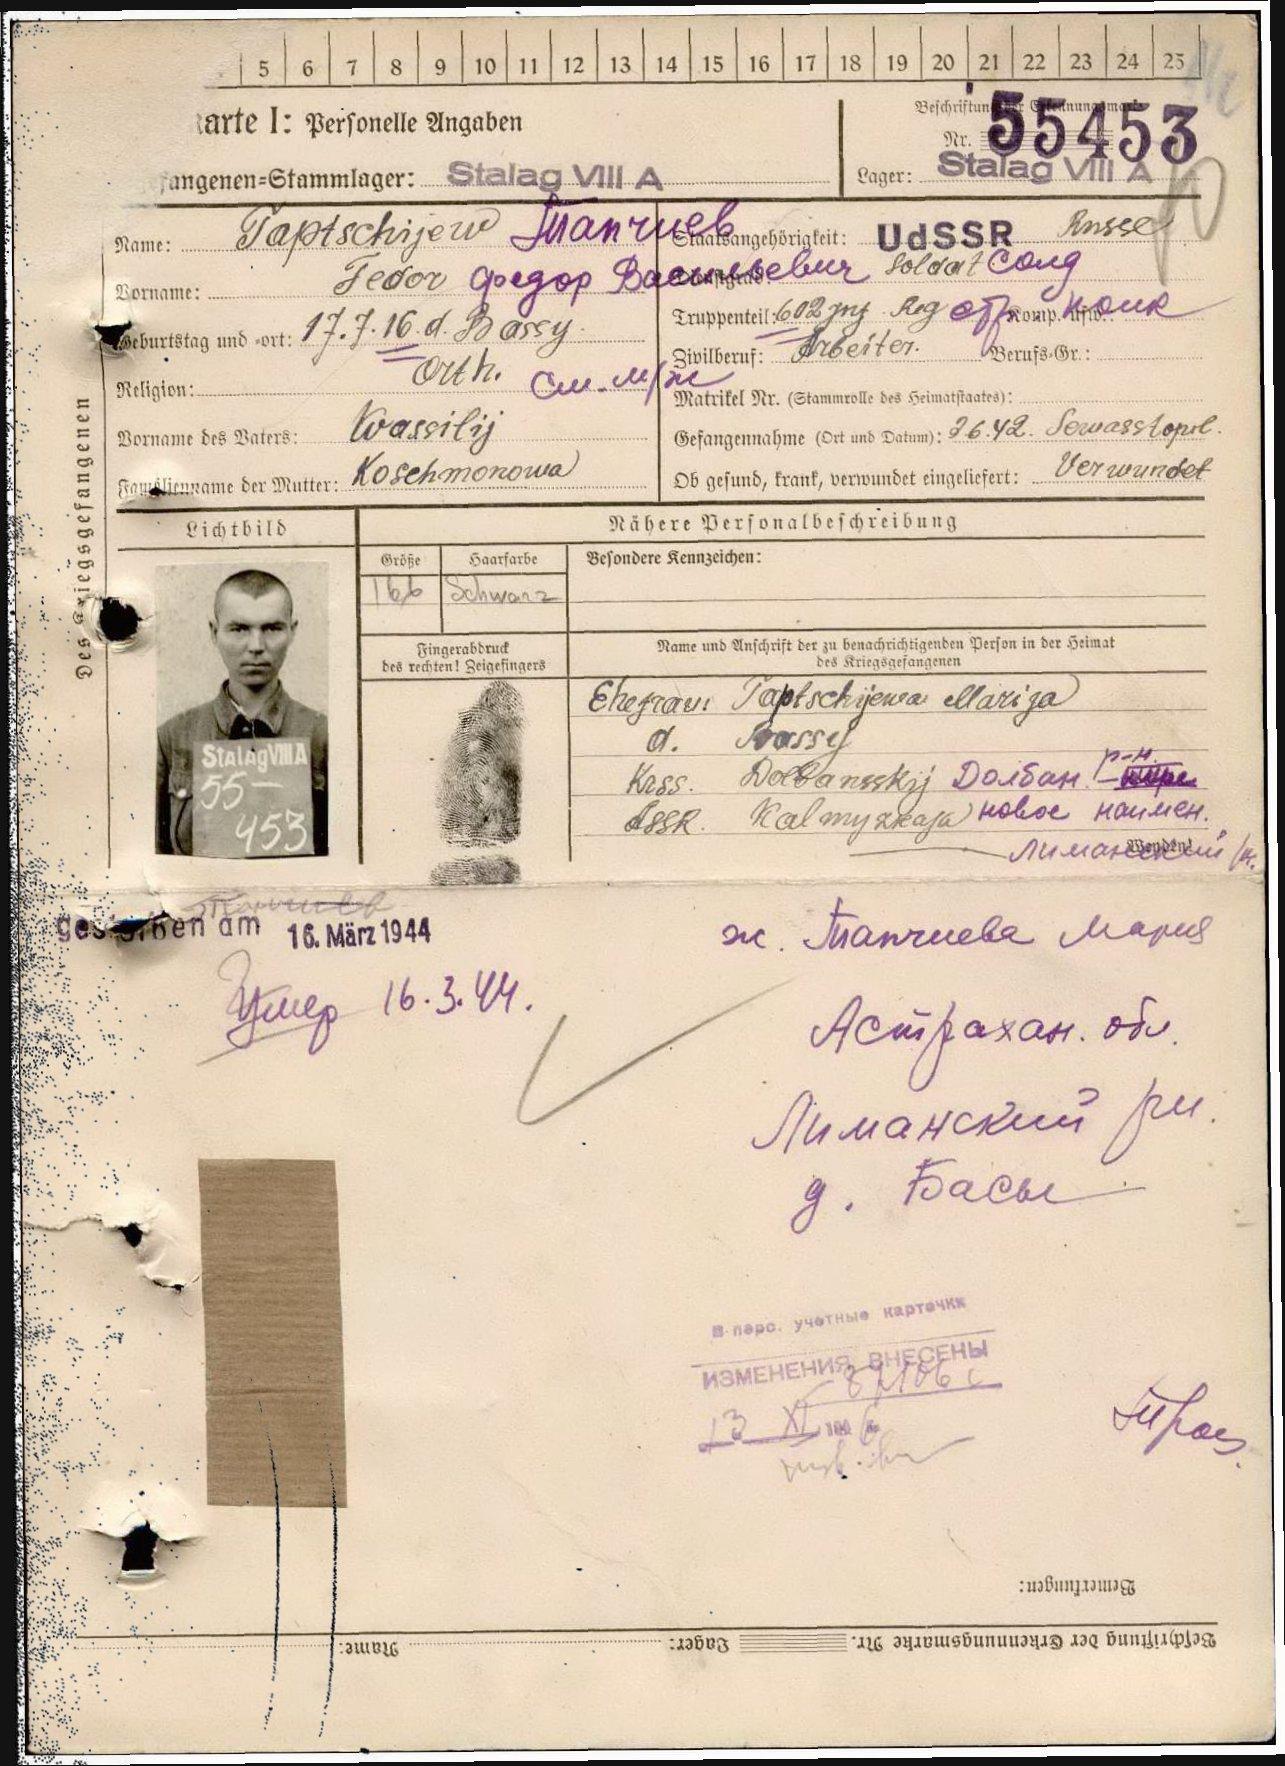 5 6 7 8 9 10 11 12 13 14 15 16 17 18 19 20 21 22 23 24 25
arte I: Personelle Angaben
Beschriftung der Erkennungsmarke
Nr. 55453
fangenen-Stammlager: Stalag VIII A
Lager: Stalag VIII A
Name: Taptschijew Тапчиев
Staatsangehörigkeit: UdSSR Russe
Vorname: Fedor Федор Васильевич
Dienstgrad: Soldat Солд
Geburtstag und -ort: 17.7.16. d. Bassy
Truppenteil: 602 Inf Reg стр Komp. usw.: полк
Zivilberuf: Arbeiter. Berufs-Gr.:
Religion: Orth. см. м/ж
Matrikel Nr. (Stammrolle des Heimatstaates):
Vorname des Vaters: Wassilij
Gefangennahme (Ort und Datum): 26.42. Sewasstopol.
Familienname der Mutter: Koschmonowa
Ob gesund, krank, verwundet eingeliefert: Verwundet
Des Kriegsgefangenen
Lichtbild
Nähere Personalbeschreibung
Größe Haarfarbe Besondere Kennzeichen:
166 Schwarz
Fingerabdruck
des rechten! Zeigefingers
Name und Anschrift der zu benachrichtigenden Person in der Heimat
des Kriegsgefangenen
Stalag VIII A
55-
453
Ehefrau: Taptschijewa Marija
d. Bassy
Krss. Dolbansskij Долбан. р-н
ASSR. Kalmyzkaja новое наимен.
Wenden!
Лиманский
gestorben am 16. März 1944
Умер 16.3.44.
ж. Тапчиева Мария
Астрахан. обл.
Лиманский рн.
д. Басы
В перс. учетные карточки
ИЗМЕНЕНИЯ ВНЕСЕНЫ
13 XI
Bemerkungen:
Beschriftung der Erkennungsmarke Nr. Lager: Name: